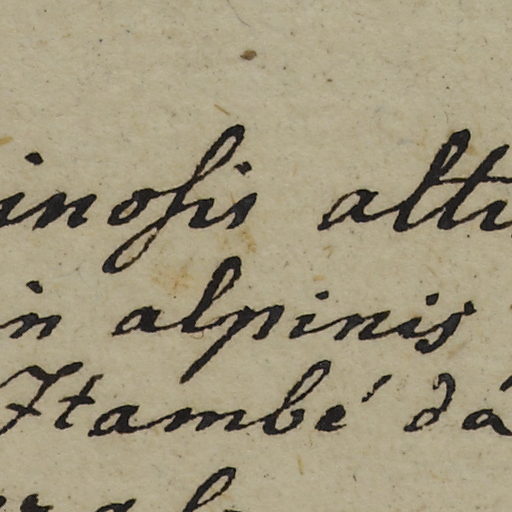 inosis altı
in alpinis
Itambé dá